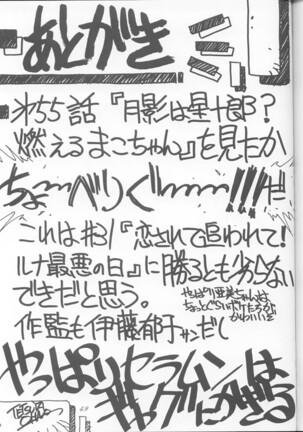 あとがき
#55話『月影は星十郎?
燃えるまこちゃん』を見たか
ちょーべりぐー!!!だ
これは#31『恋されて追われて!
ルナ最悪の日』に勝るとも劣らない
できだと思う。
やっぱり亜美ちゃんは
ちょっとぐらいボケたろうが
かわいいぞ
作監も伊藤郁子サンだし
やっぱりセラムンは
ギャグにかぎる